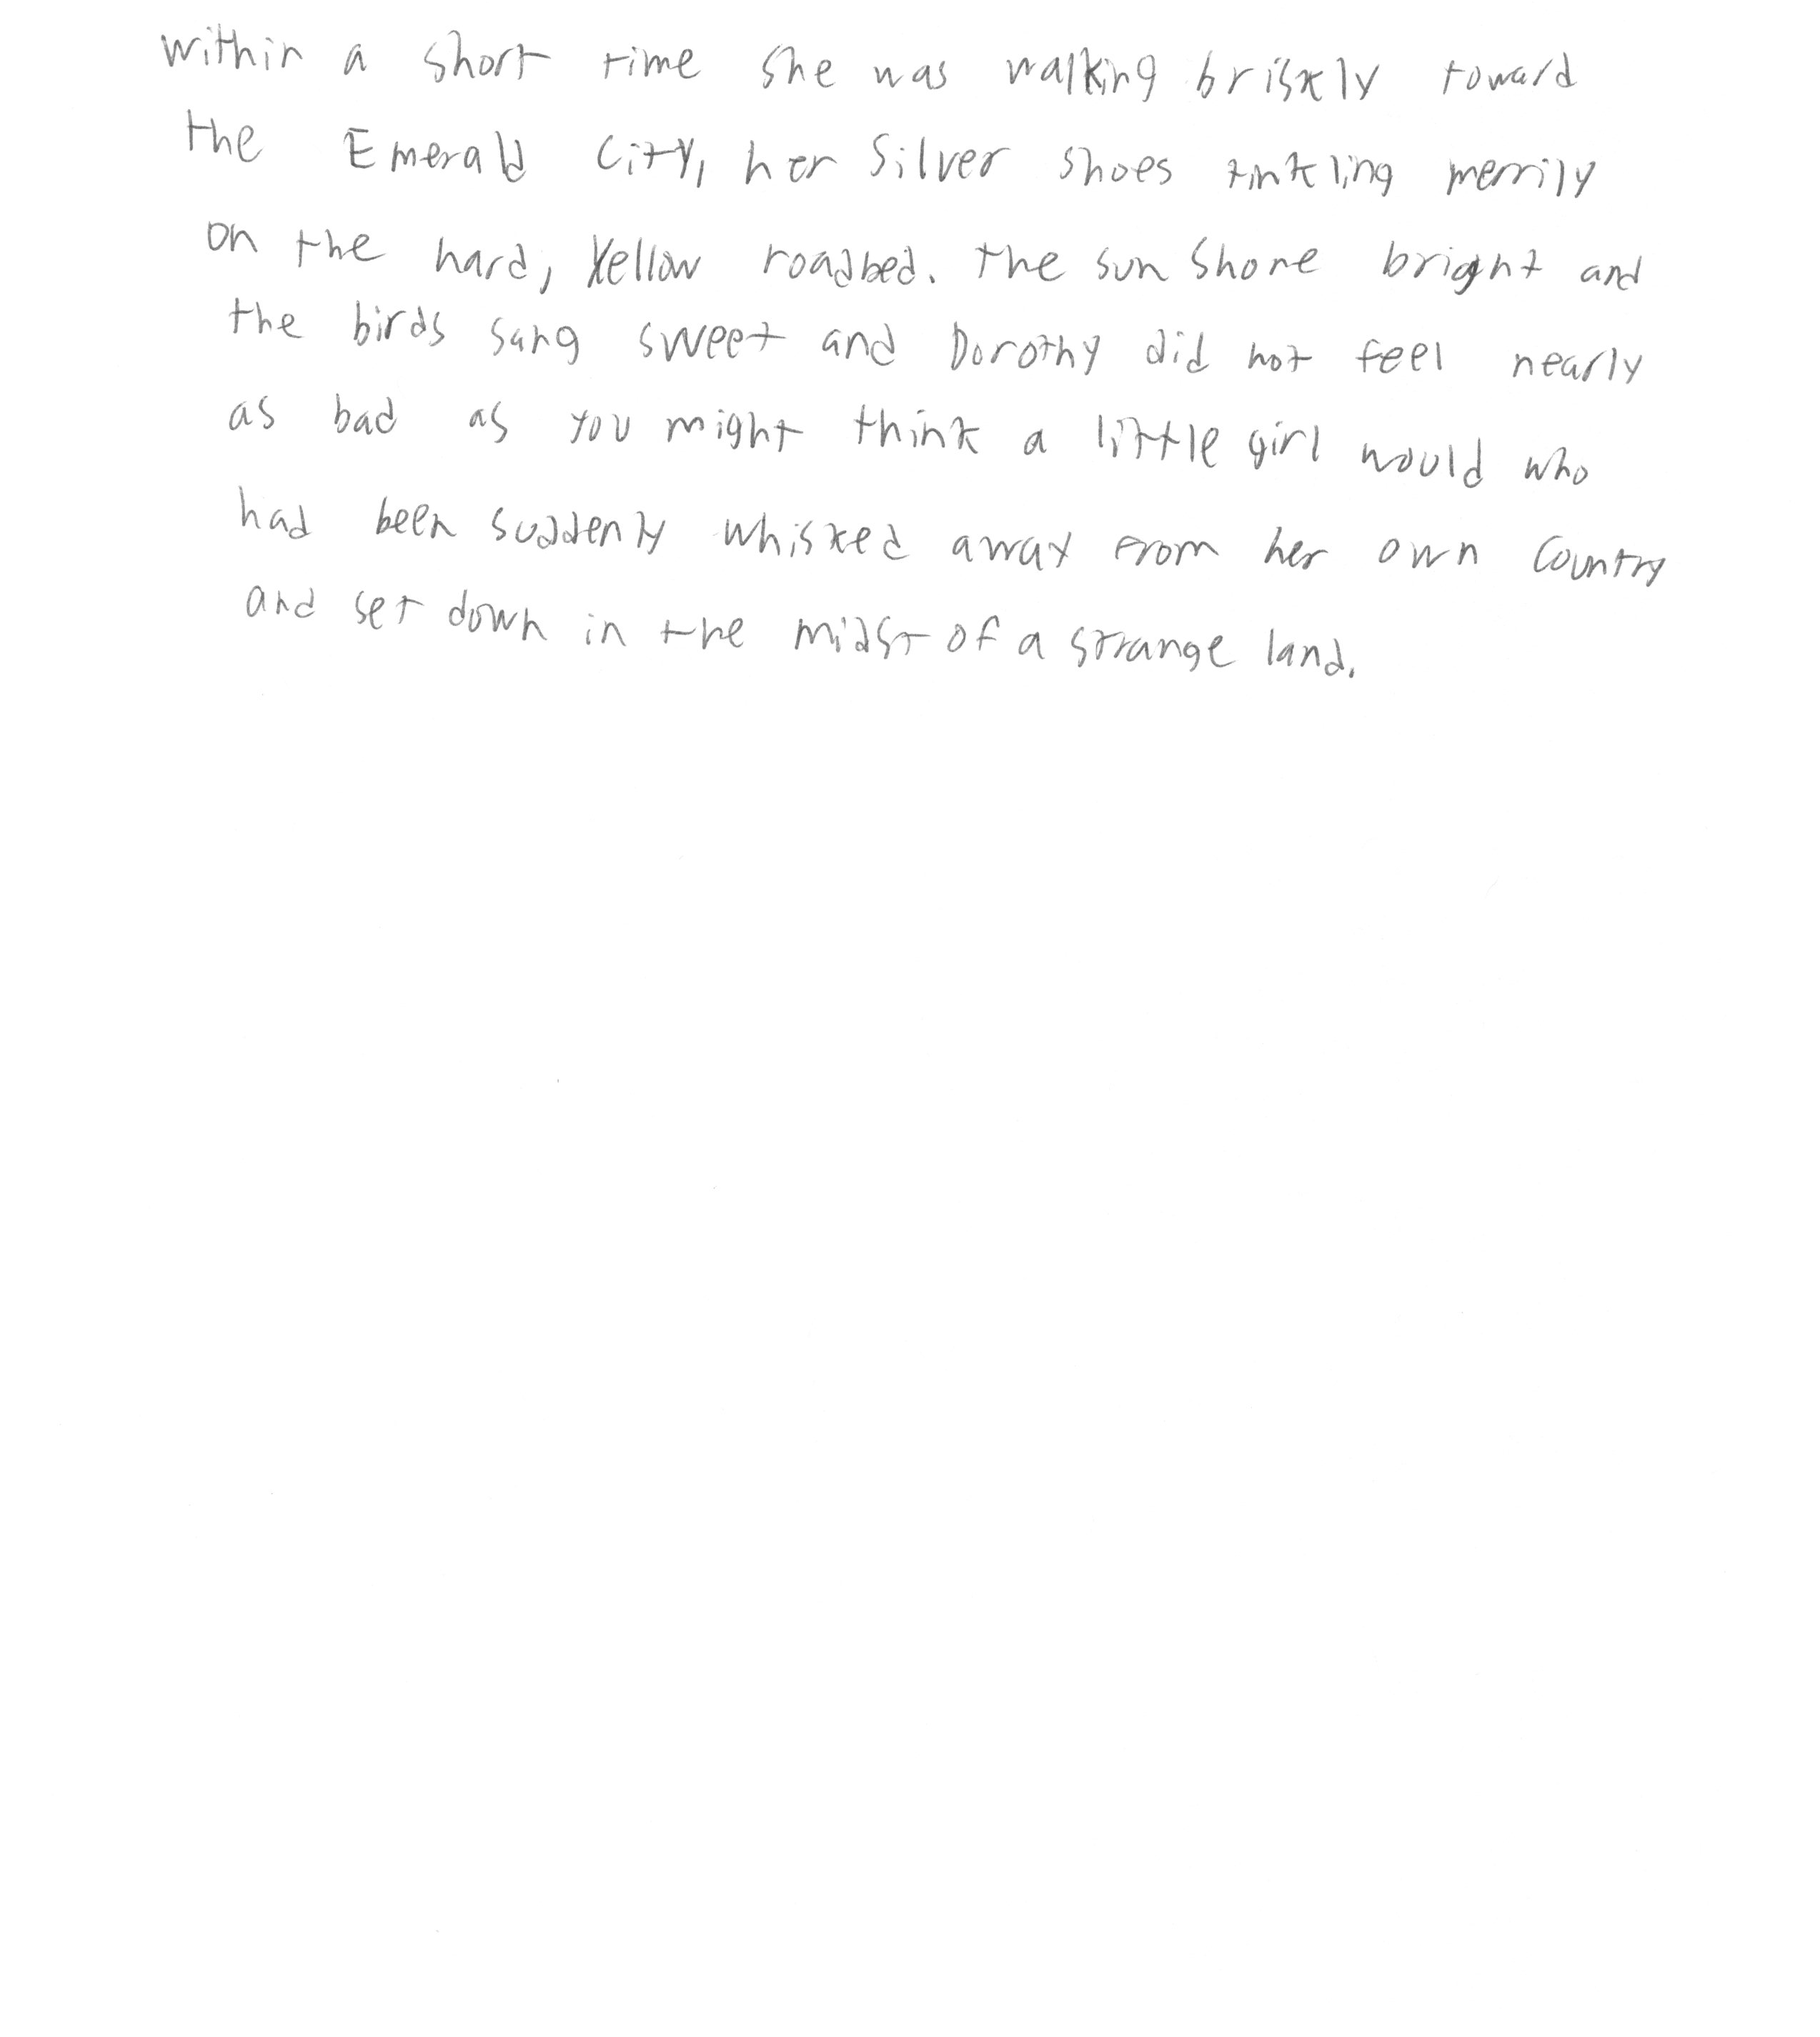 within a short time she was walking briskly toward
the Emerald City, her Silver shoes tinkling merrily
on the hard, yellow roadbed. the sun shone bright and
the birds sang sweet and Dorothy did not feel nearly
as bad as you might think a little girl would who
had been suddenly whisked away from her own country
and set down in the midst of a strange land.